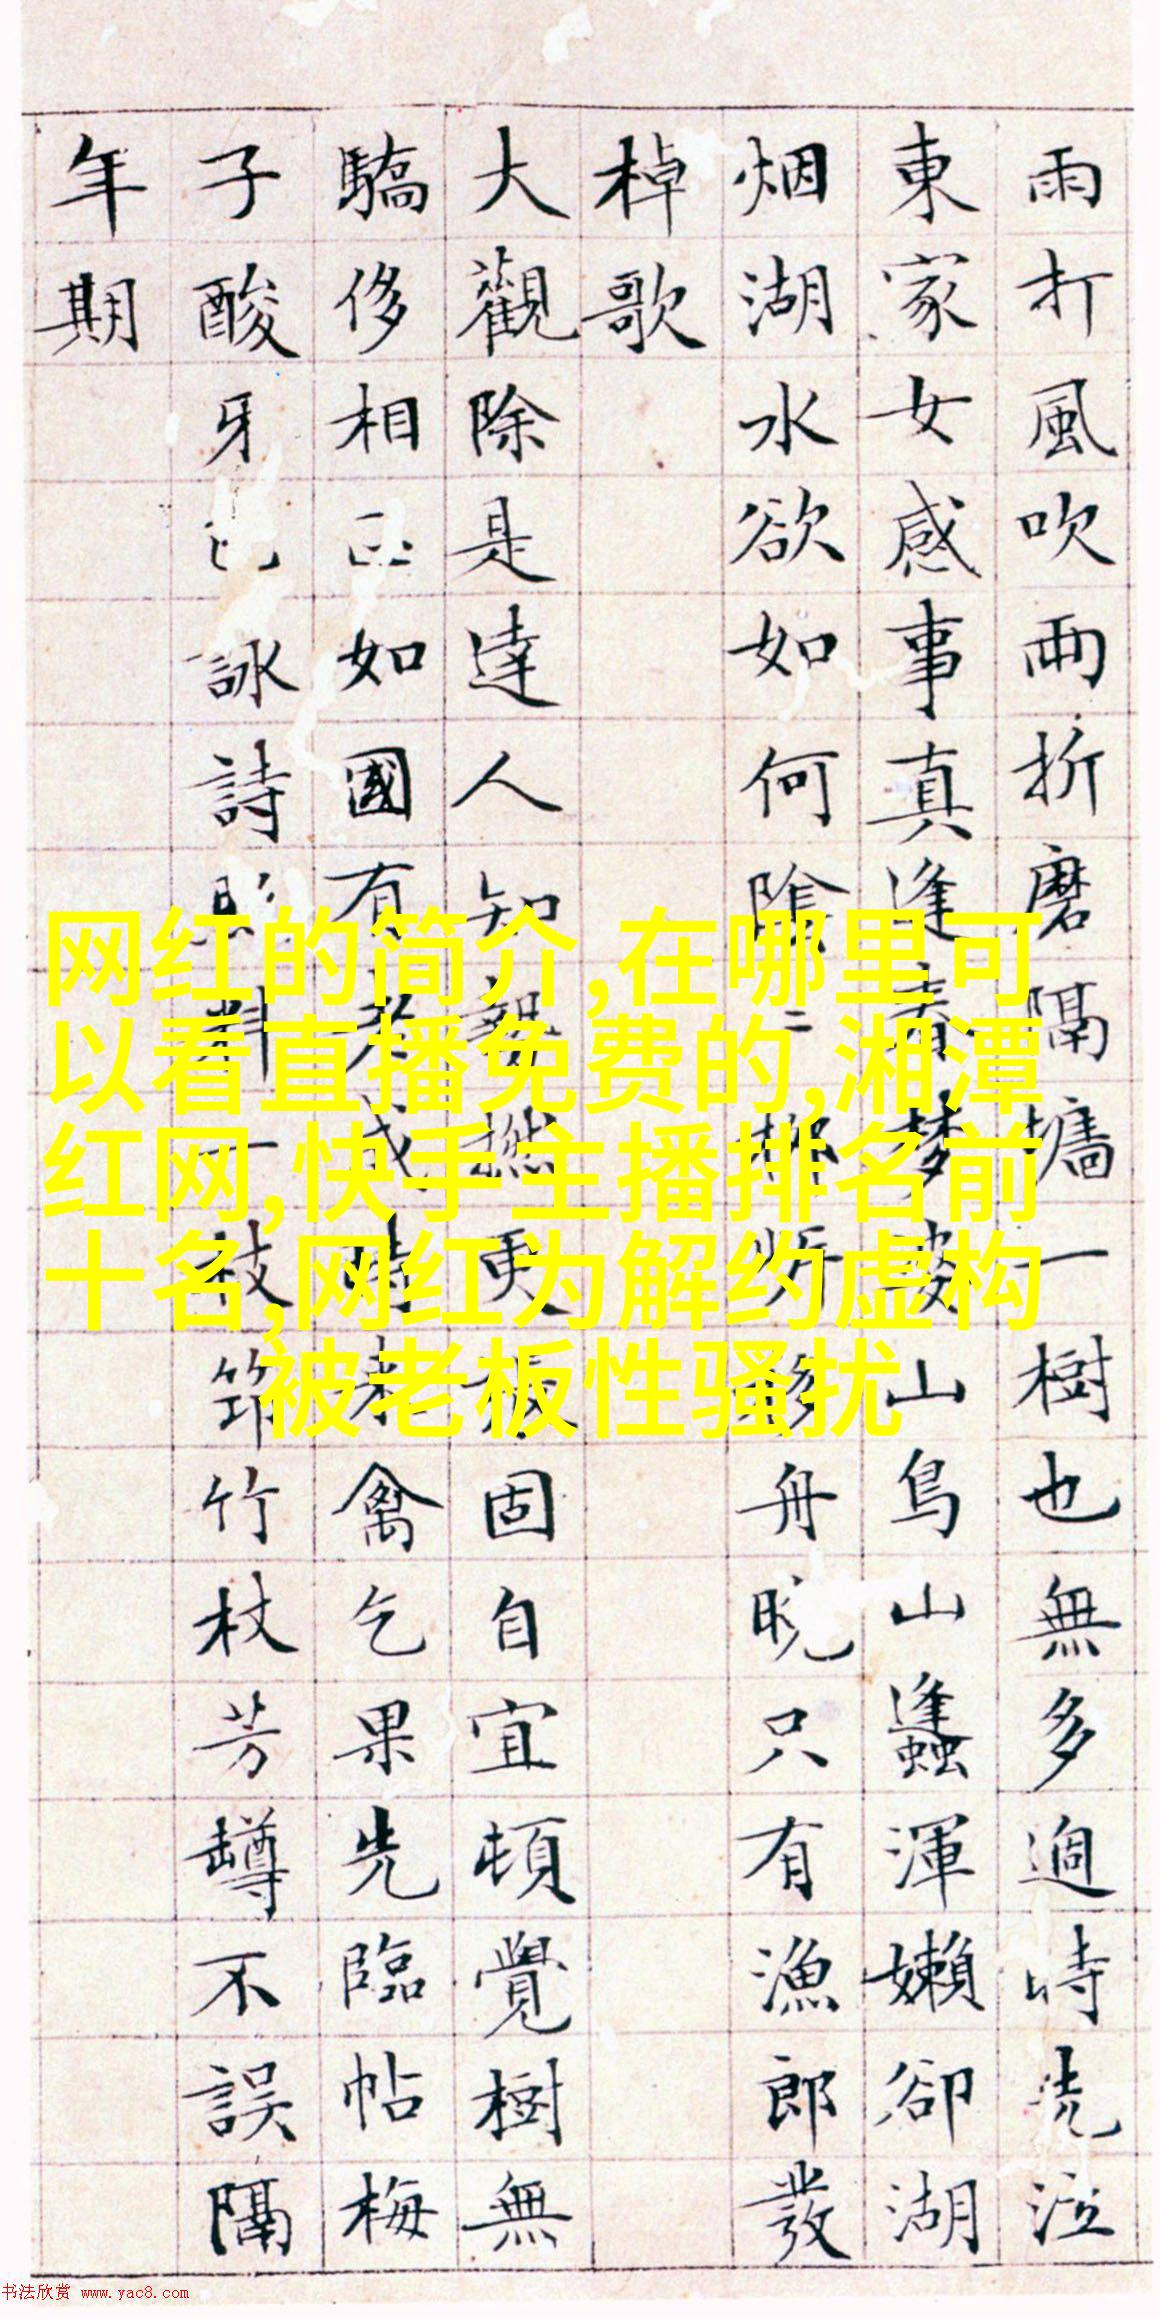 雨打風吹兩折磨隔墻一樹也無多過時洗泣
東家女感事真逢素夢婆山鳥山蠭渾嬾卻湖
烟湖水欲如何陰二 將移舟晚只有漁郎發
棹歌
大觀除是達人知 更板固自宜頓覺樹無
驕侈相 如國有 成 禽乞果先臨帖梅
子酸牙 詠詩 料一枝筇竹杖芳罇不誤隔
年期
网红的简介,在哪里可
以看直播免费的,湘潭
红网,快手主播排名前
十名,网红为解约虚构
被老板性骚扰
书法欣赏 www.yac8.com